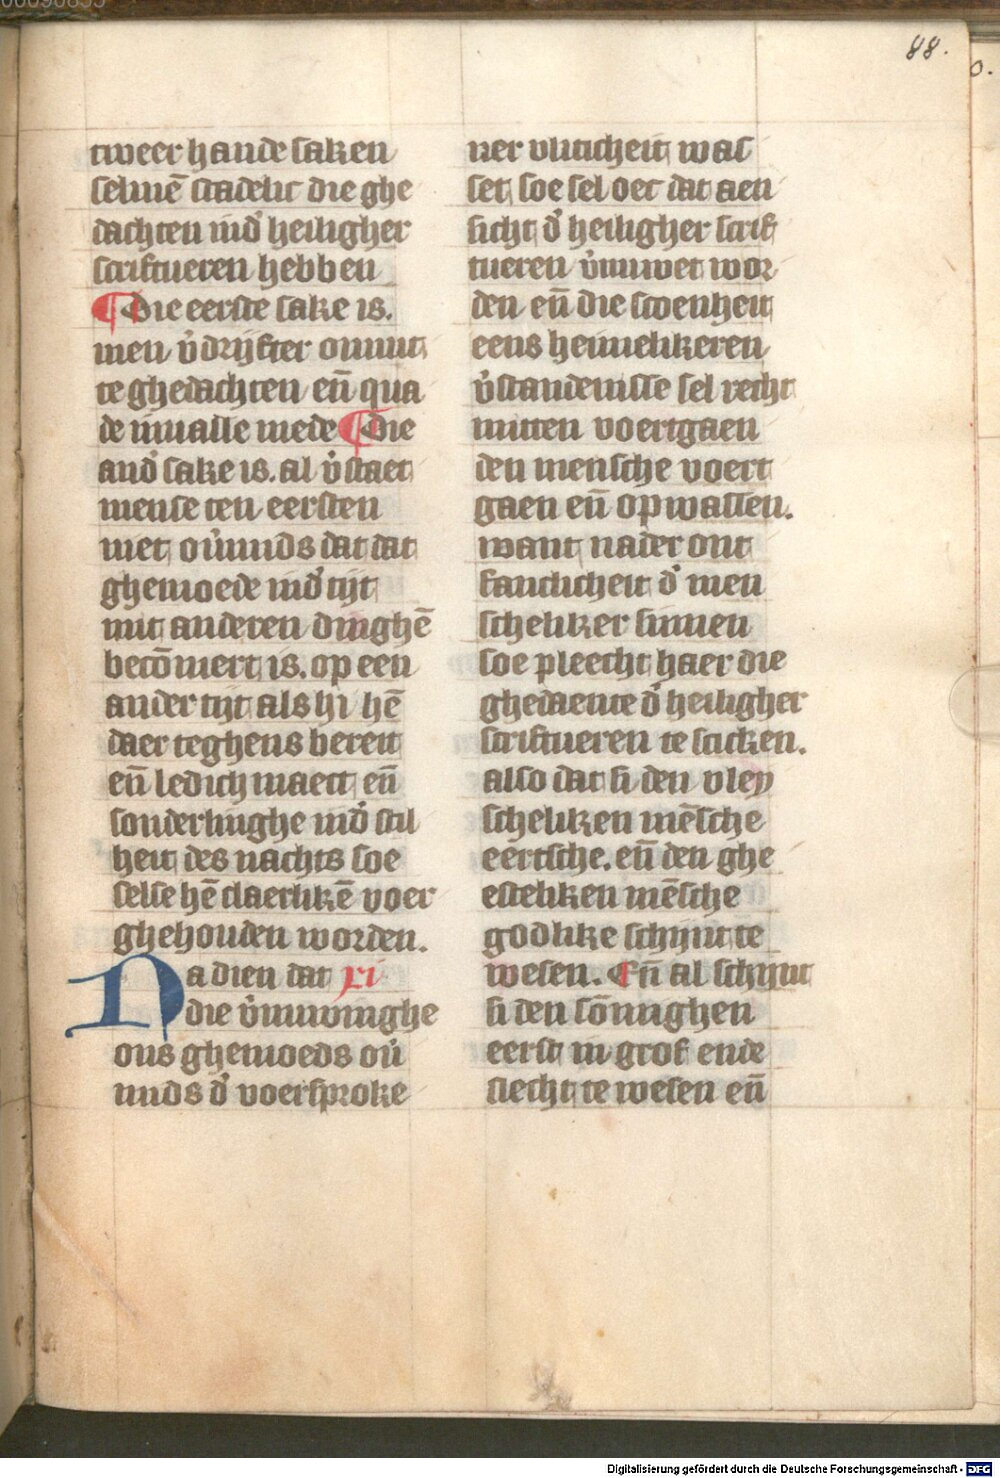 88.
tweer hande saken
selmē stadelic die ghe
dachten ind᷒ heiligher
scriftueren hebben
¶ Die eerste sake is.
men v᷒drijfter onnut
te ghedachten en̄ qua
de in valle mede ¶ Die
and᷒ sake is. al v᷒staet
mense ten eersten
niet, ou᷒mids dat dat
ghemoede ind᷒ tijt
mit anderen dinghē
becōmert is. op een
ander tijt als hi hē
daer teghens bereit
en̄ ledich maect en̄
sonderlinghe ind᷒ stil
heit des nachts soe
selse hē claerlikē voer
ghehouden worden.
Na dien dat xi
die v᷒nuwinghe
ons ghemoeds ou᷒
mids d᷒ voersproke
ner vliticheit was
set, soe sel oec dat aen
sicht d᷒ heiligher scrif
tueren v᷒nuwet wor
den en̄ die scoenheit
eens heimelikeren
v᷒standenisse sel recht
mitten voertgaen
den mensche voert
gaen en̄ op wassen.
want nader ont
fanclicheit d᷒ men
scheliker sinnen
soe pleecht haer die
ghedaente d᷒ heiligher
scriftueren te scicken.
also dat si den vley
scheliken mēsche
eertsche. en̄ den ghe
esteliken mēsche
godlike schijnt te
wesen. En̄ al schijnt
si den sōmighen
eerst in grof ende
slecht te wesen en̄
Digitalisierung gefördert durch die Deutsche Forschungsgemeinschaft - DFG